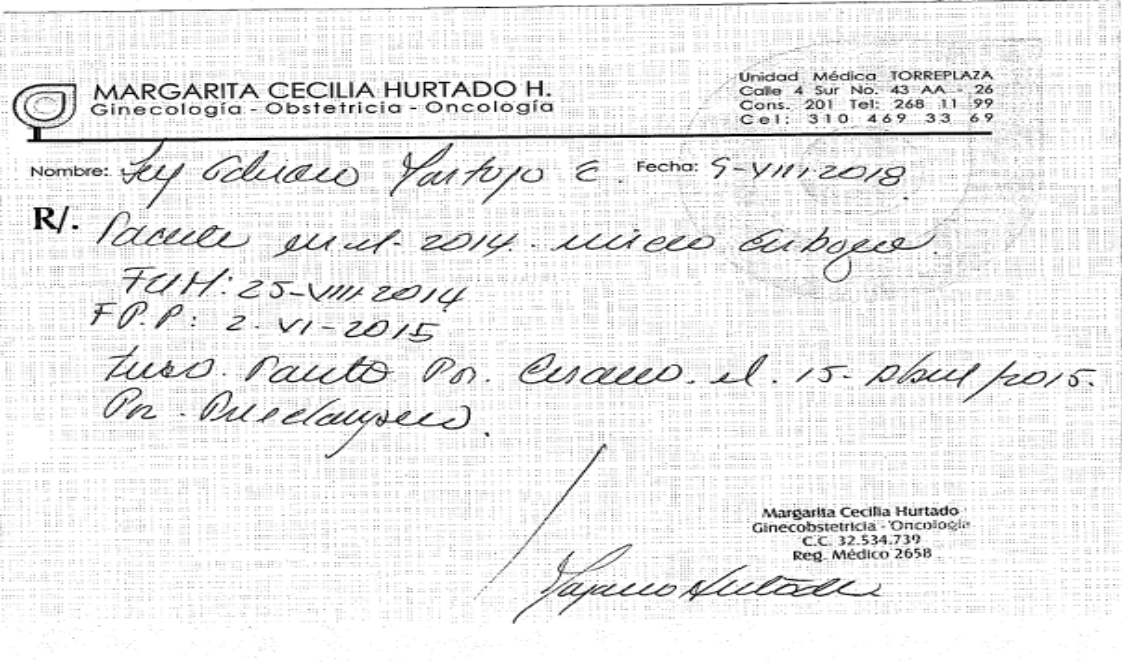 MARGARITA CECILIA HURTADO H.
Ginecología - Obstetricia - Oncología
Unidad Médica TORREPLAZA
Calle 4 Sur No. 43 AA - 26
Cons. 201 Tel: 268 11 99
Cel: 310 469 33 69
Nombre: E. Fecha: 9-VIII-2018
R/. Paciente en el 2014. inicio Embarazo.
FUM: 25-VIII-2014
F.P.P: 2-VI-2015
tuvo Parto Por Cesarea el 15- Abril /2015.
Por Preeclampsia.
Margarita Cecilia Hurtado
Ginecobstetricia - Oncología
C.C. 32.534.739
Reg. Médico 2658